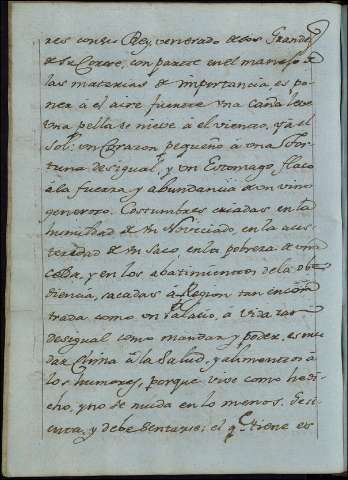 res con su Rey, venerado de los Grandes
de su Corte, con parte en el manejo de
las materias de importancia, es po-
ner a el aire fuerte vna caña leve
vna pella de nieve à el viento, y à el
Sol: vn Corazon pequeño a vna for-
tuna desigual, y vn Estomago flaco
à la fuerza y abundancia de vn vino
generoso. Costumbres criadas en la
humildad de vn Noviciado, en la aus-
teridad de vn saco en la pobreza de vna
celda, y en los abatimientos de la obe-
diencia, sacadas à Region tan encon-
trada como vn Palacio, a vida tan
desigual como mandar y poder, es mu-
dar Clima à la Salud, y alimentos à
los humores, porque vive como he di-
cho, y no se muda en lo menos.
y debe Sentarse; el q. tiene es